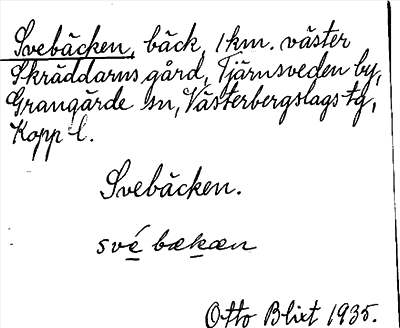 Svebäcken, bäck, 1 km. väster
Skräddarns gård, Tjärnsveden by,
Grangärde sn, Västerbergslags tg,
Kopp. l.
Svebäcken.
své bækæn
Otto Blixt 1935.